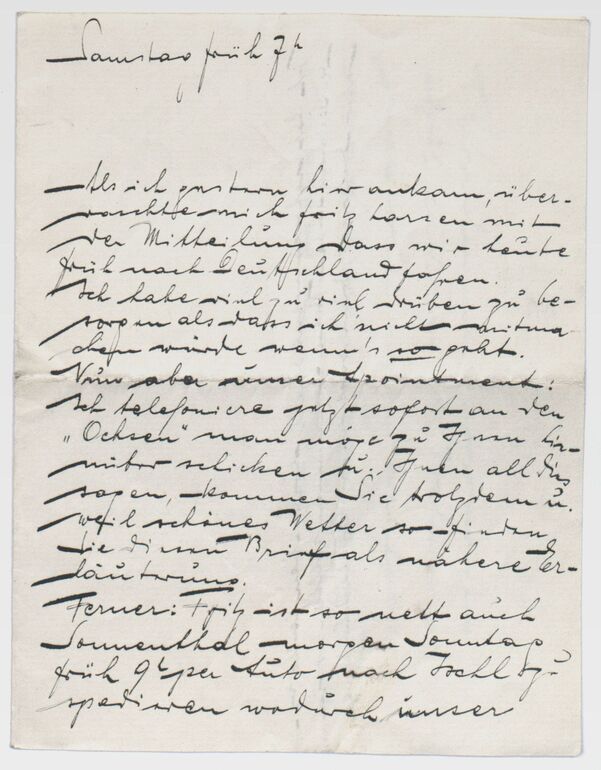 Samstag früh 7h
Als ich gestern hier ankam, über-
raschte mich Fritz Larsen mit
der Mitteilung dass wir heute
früh nach Deutschland fahren.
Ich habe viel zu viel drüben zu be-
sorgen als dass ich nicht mitma-
chen würde wenn's so geht.
Nun aber unser Apointment:
Ich telefoniere jetzt sofort an den
"Ochsen" man möge zu Ihnen hin-
über schicken u. Ihnen all dies
sagen, kommen Sie trotzdem u.
weil schönes Wetter so finden
Sie diesen Brief als nähere Er-
läuterung.
Ferner: Fritz ist so nett auch
Sonnenthal morgen Sonntag
früh 9h per Auto nach Ischl zu
spedieren wodurch unser